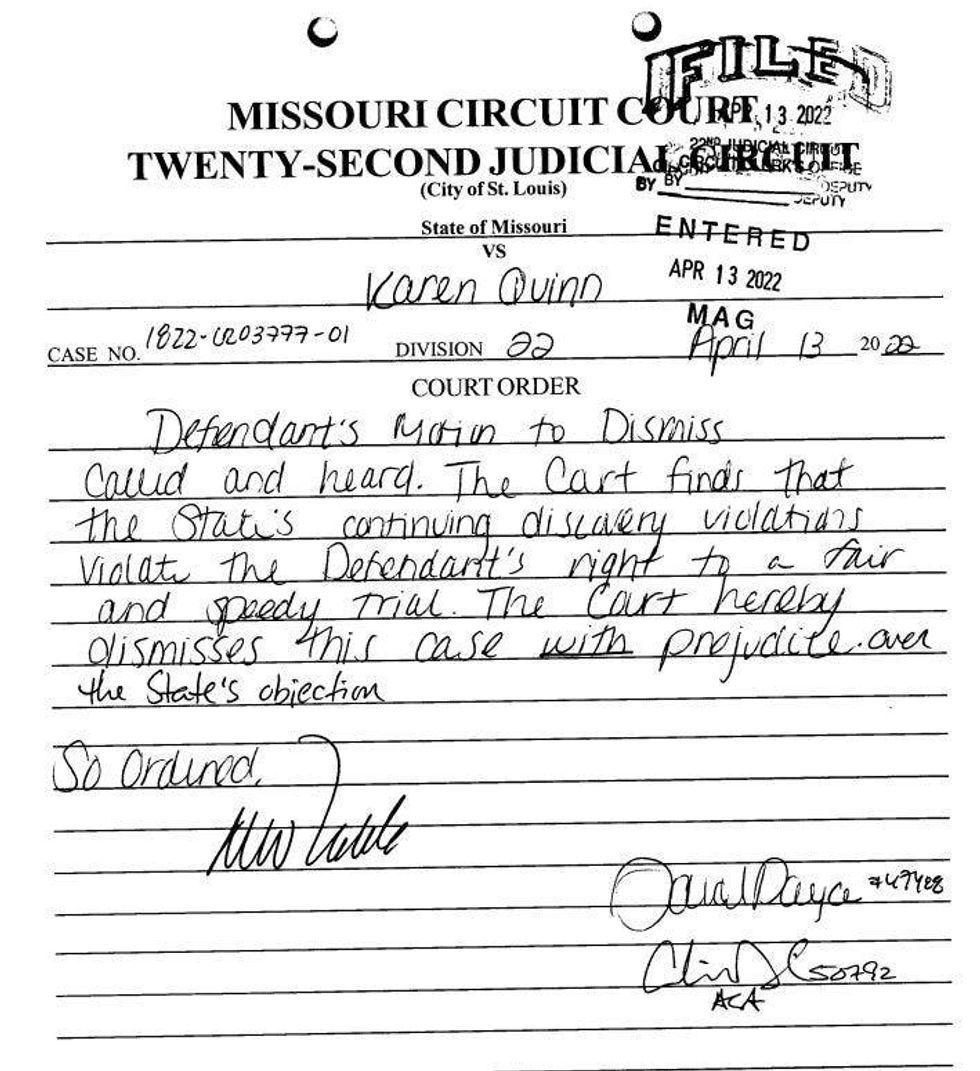 FILED
MISSOURI CIRCUIT COURT
APR 13 2022
TWENTY-SECOND JUDICIAL CIRCUIT
22ND JUDICIAL CIRCUIT
CIRCUIT CLERK'S OFFICE
(City of St. Louis)
BY BY DEPUTY
DEPUTY
State of Missouri
ENTERED
VS
APR 13 2022
Karen Quinn
MAG
CASE NO. 1822-CR03777-01 DIVISION 22 April 13 2022
COURT ORDER
Defendant's Motion to Dismiss
called and heard. The Court finds that
the State's continuing discovery violations
violate the Defendant's right to a fair
and speedy trial. The Court hereby
dismisses this case with prejudice. over
the State's objection
So Ordered.
#47488
50792
ACA